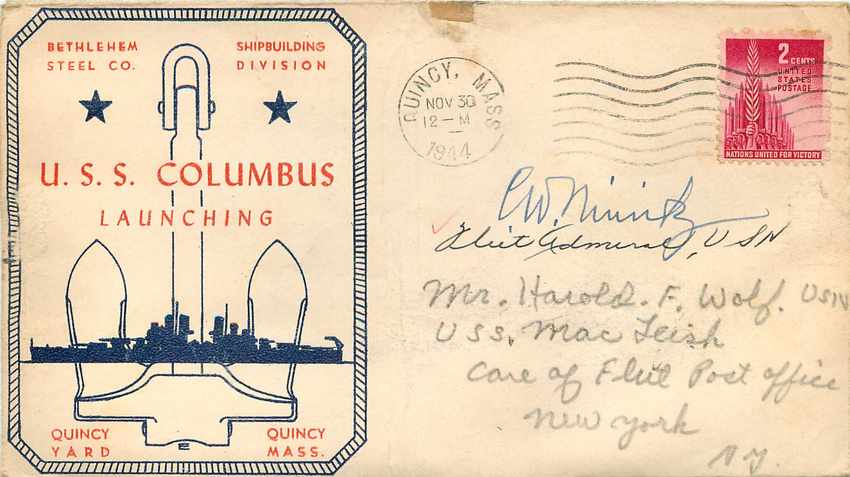 BETHLEHEM STEEL CO.
SHIPBUILDING DIVISION
U. S. S. COLUMBUS
LAUNCHING
QUINCY YARD
QUINCY MASS.
E
QUINCY, MASS
NOV 30
12 - M
1944
2 CENTS
UNITED
STATES
POSTAGE
NATIONS UNITED FOR VICTORY
C.W. Nimitz
Fleet Admiral, USN
Mr. Harold. F. Wolf. USN
USS. Mac Leish
Care of Fleet Post office
New York
N.Y.